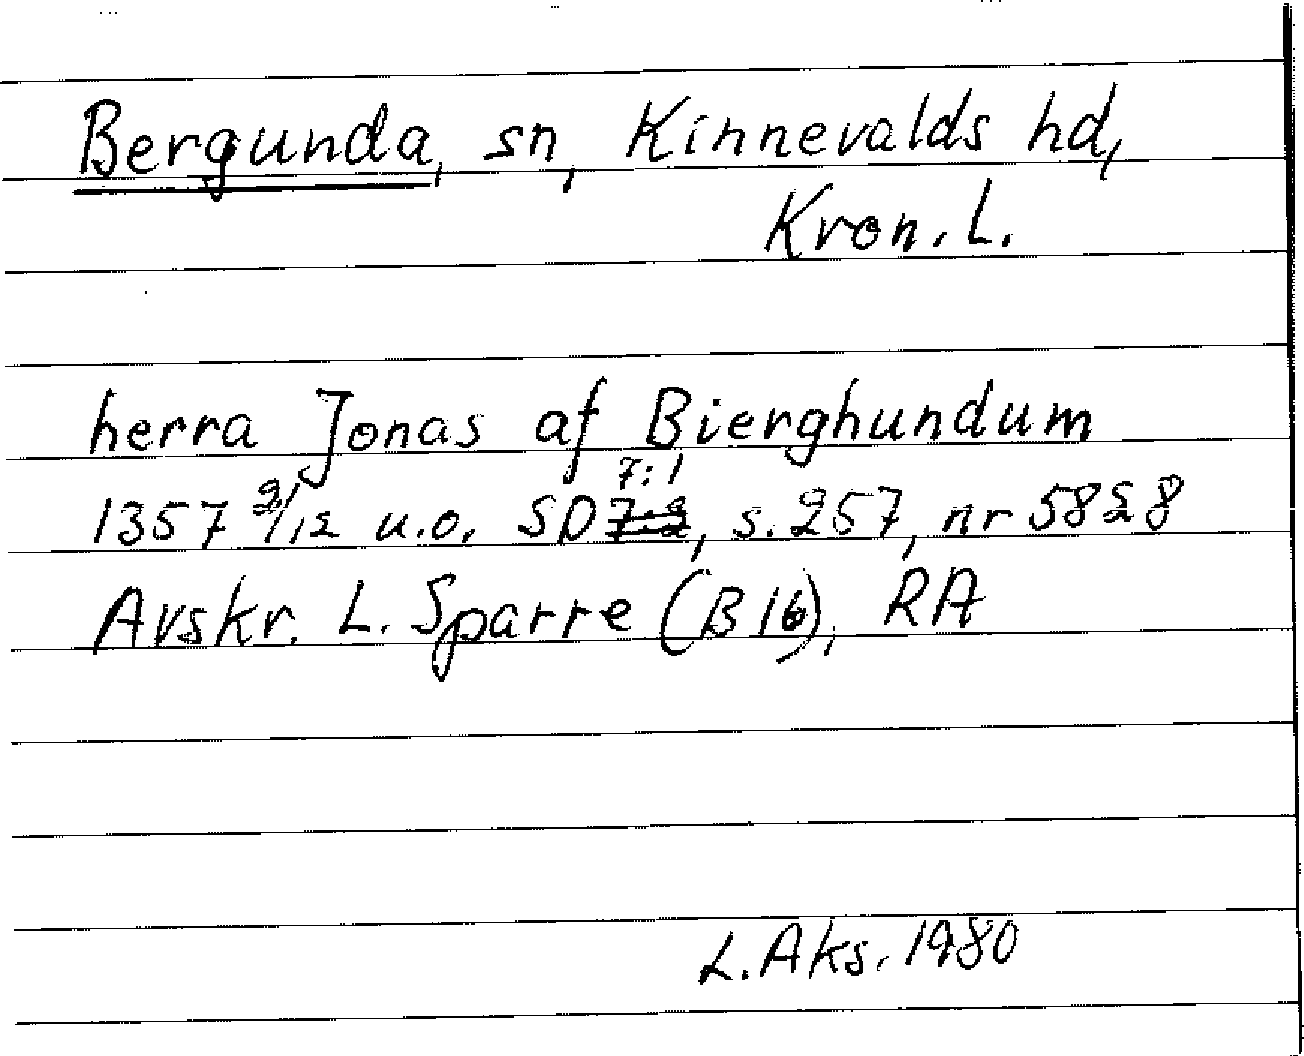 Bergunda, sn, Kinnevalds hd,
Kron. L.
herra Jonas af Bierghundum
7:1
1357 2/12 u.o. SD 7:2, s. 257, nr 5828
Avskr. L. Sparre (B 16), RA
L. Aks. 1980